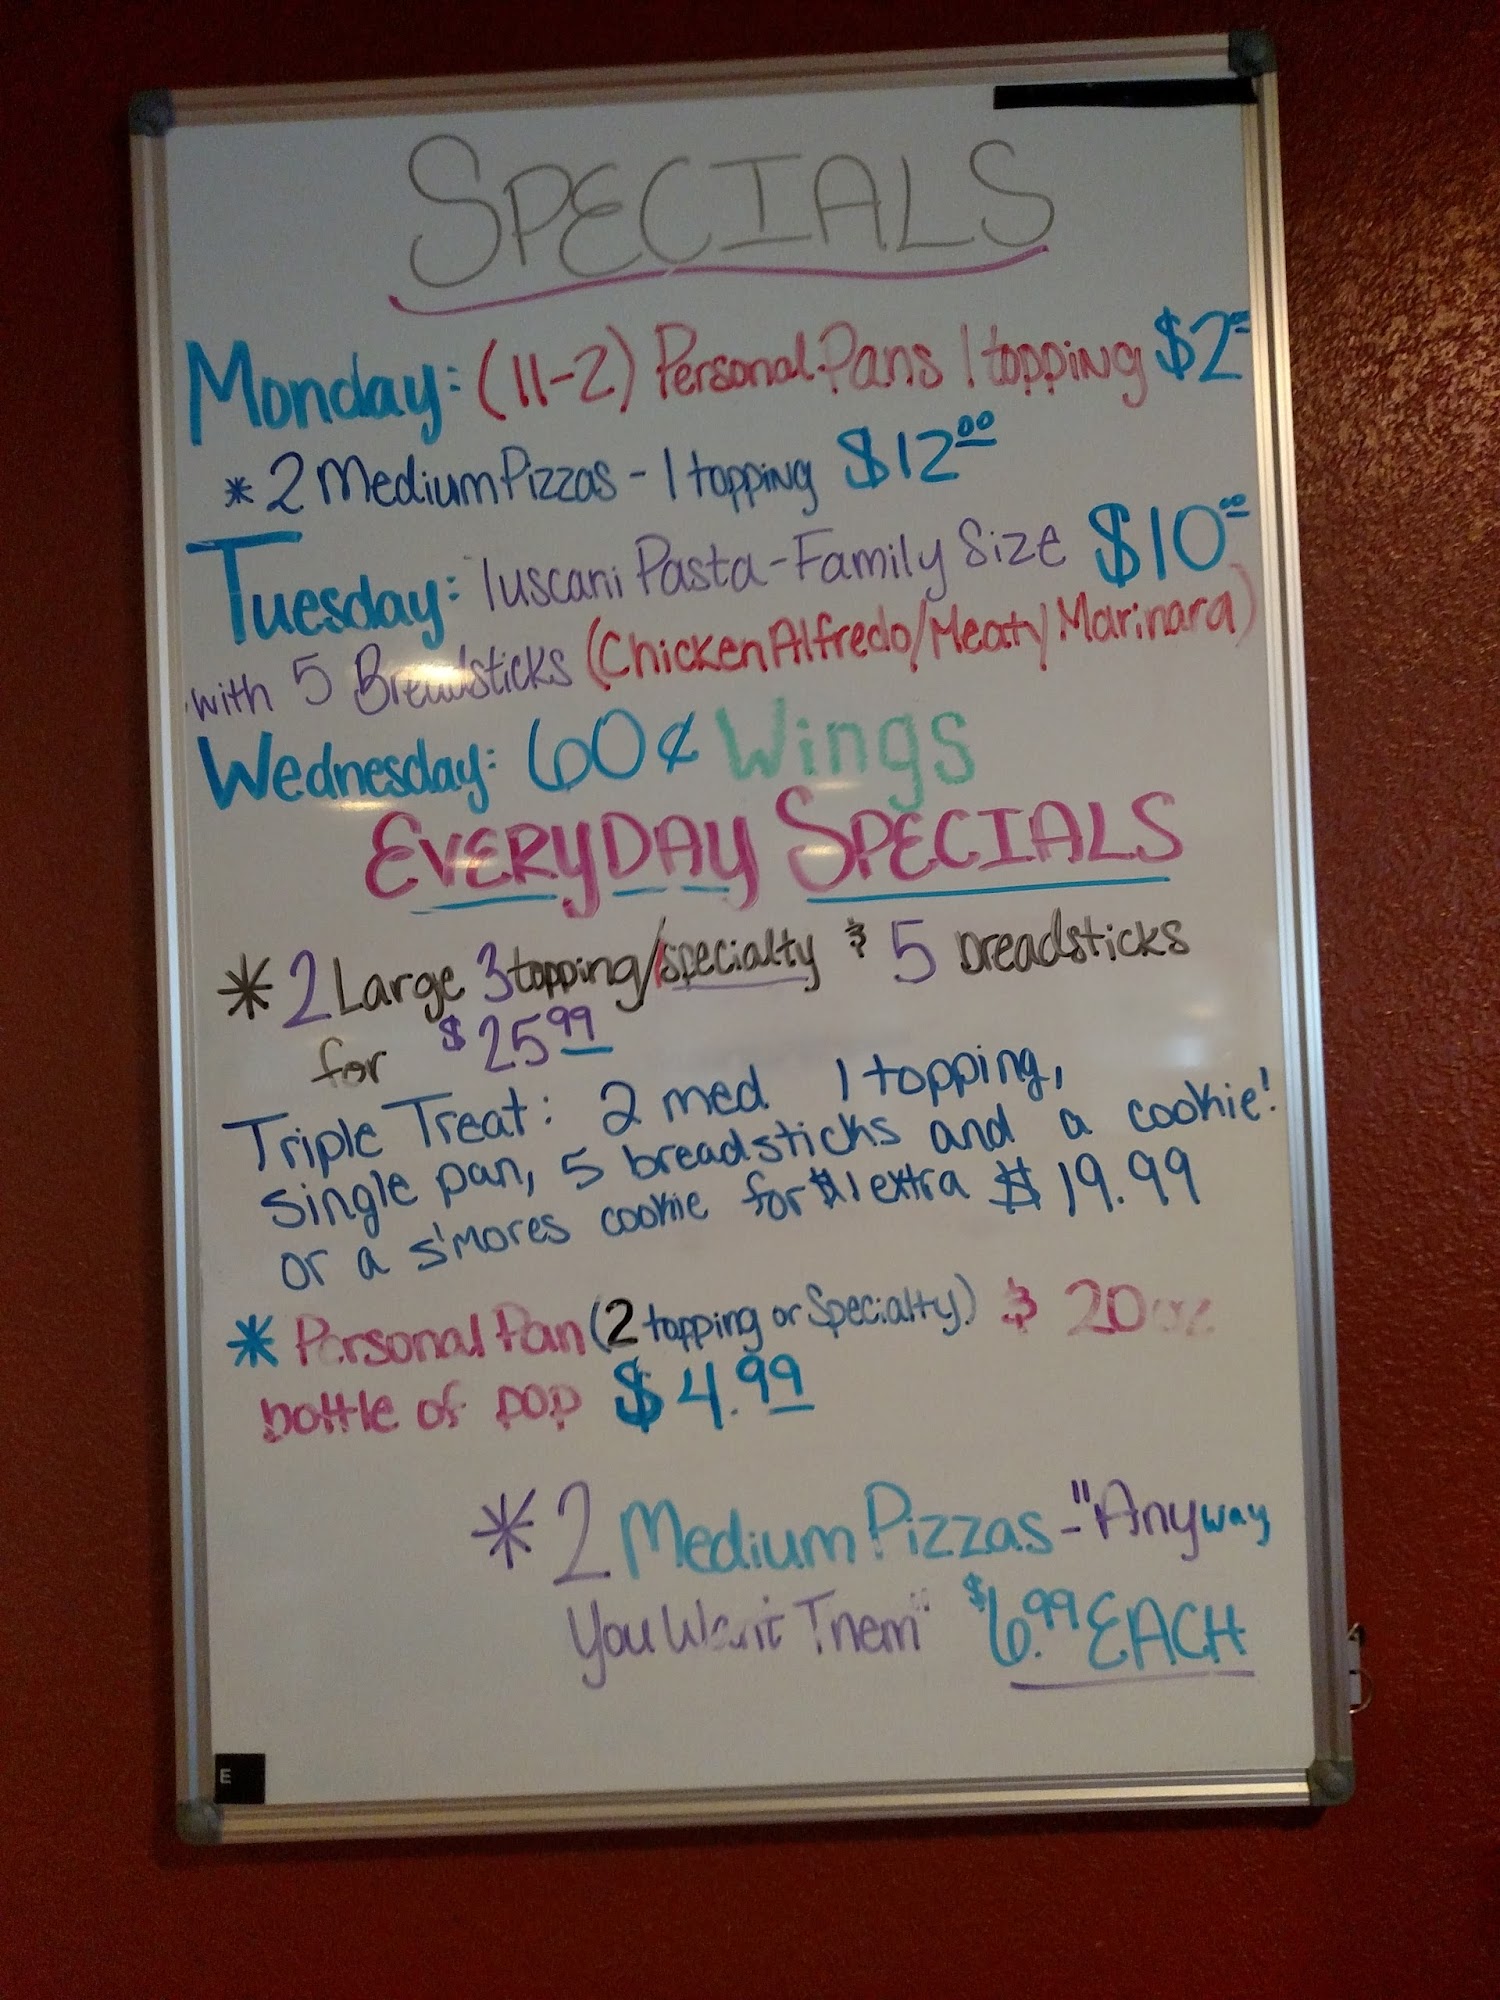 SPECIALS
Monday: (11-2) Personal Pans 1 topping $2.00
* 2 Medium Pizzas - 1 topping $12.00
Tuesday: Tuscani Pasta - Family Size $10.00
with 5 Breadsticks (Chicken Alfredo/Meaty Marinara)
Wednesday: 60¢ Wings
EVERYDAY SPECIALS
* 2 Large 3 topping/specialty & 5 breadsticks
for $25.99
Triple Treat: 2 med 1 topping,
single pan, 5 breadsticks and a cookie!
or a s'mores cookie for $1 extra $19.99
* Personal Pan (2 topping or Specialty) & 20 oz
bottle of pop $4.99
* 2 Medium Pizzas - "Anyway
You Want Them" $6.99 EACH
E